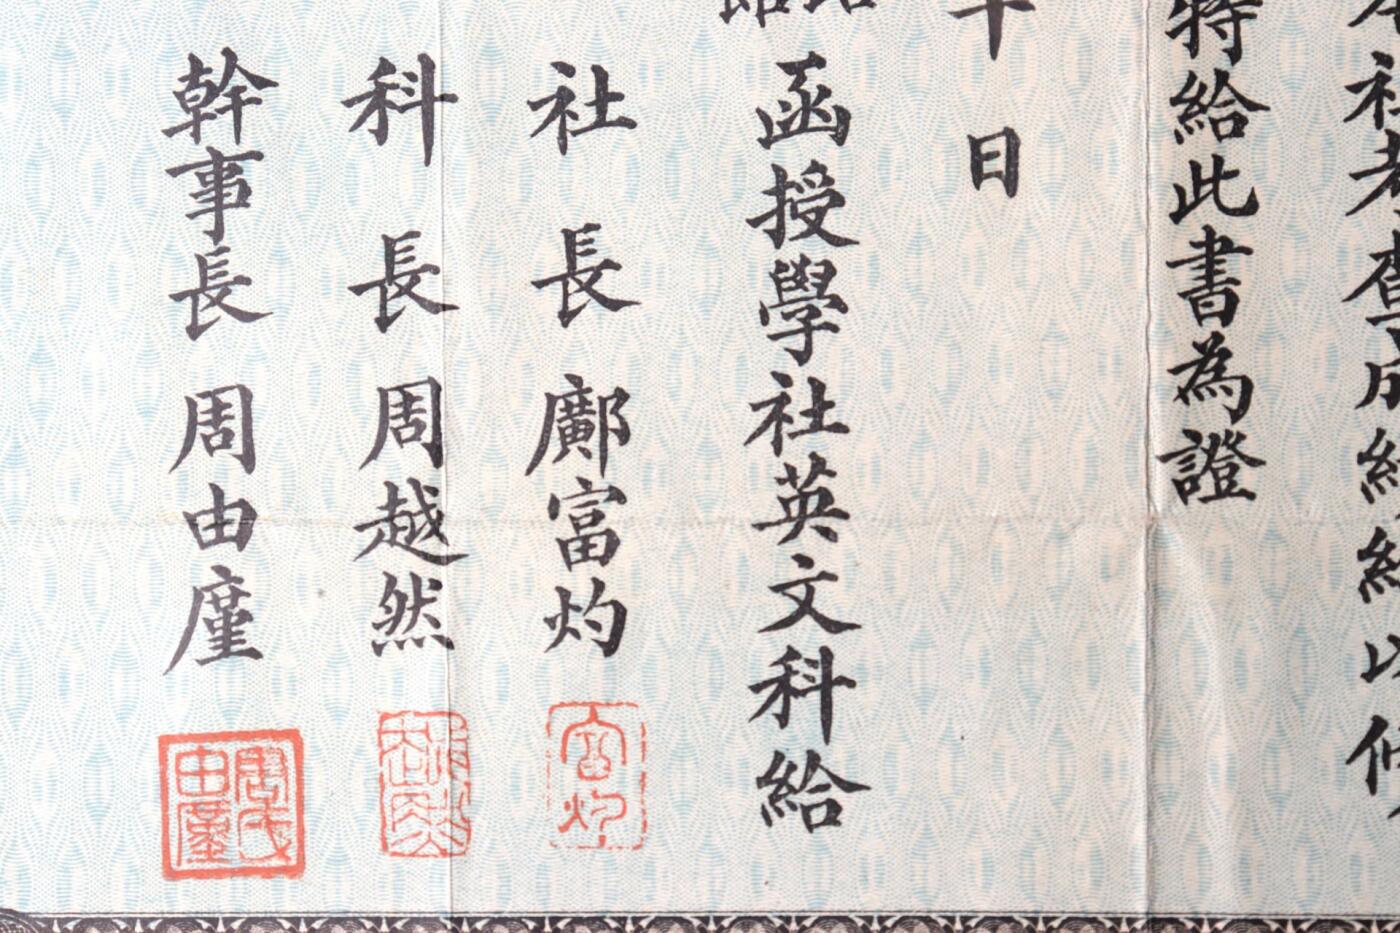 社考查成
特給此書為證
日
函授學社英文科給
社長 鄺富灼
科長 周越然
幹事長 周由廑
富灼
周氏由廑